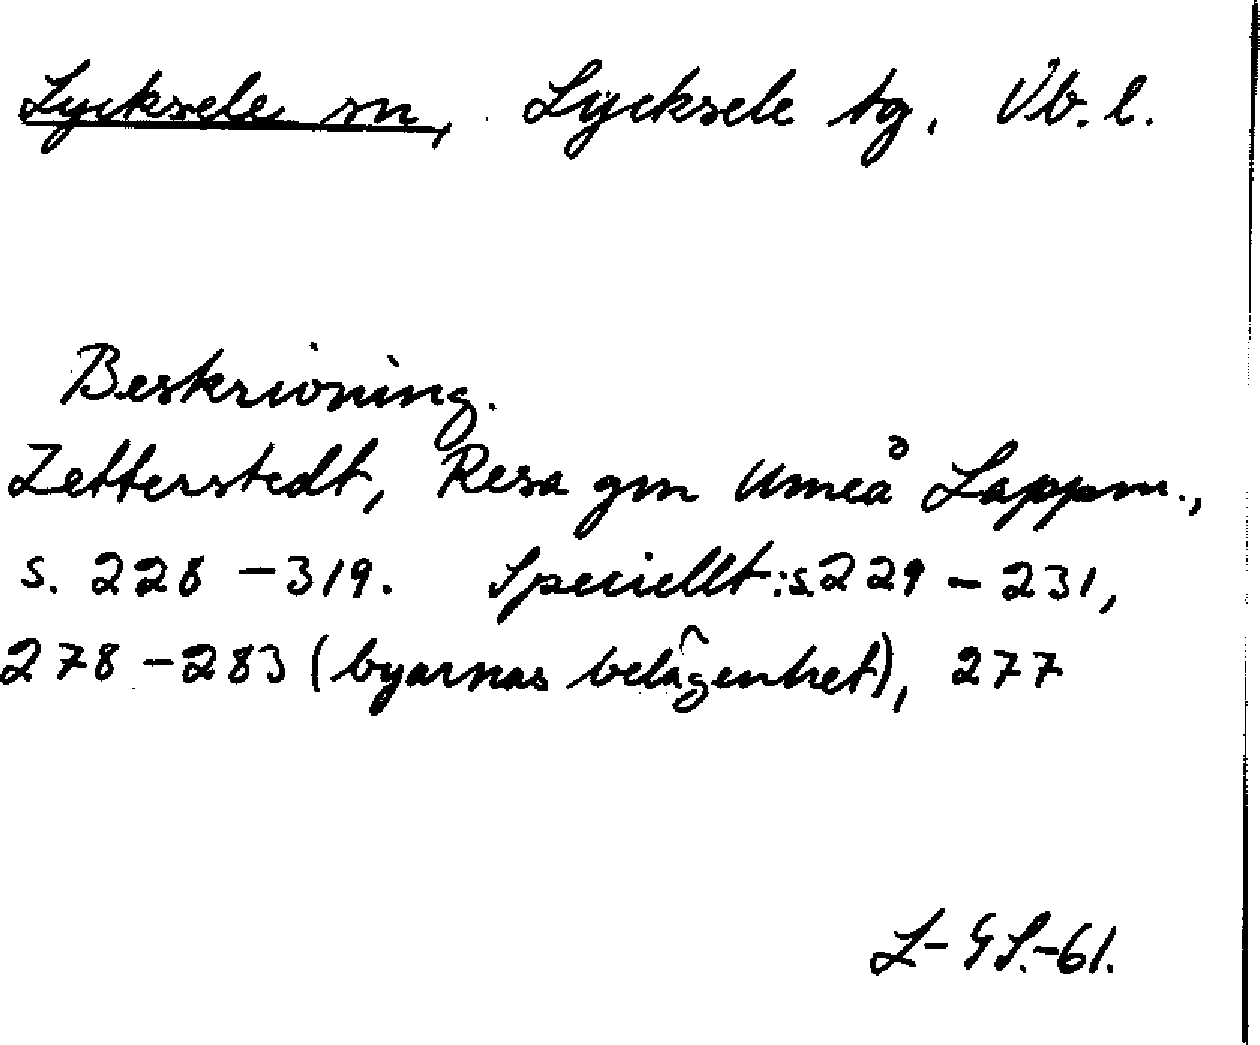 Lycksele sn, Lycksele tg, Vb. l.
Beskrivning.
Zetterstedt, Resa gm Umeå Lappm.,
s. 228 - 319. Speciellt: s. 229 - 231,
278 - 283 (byarnas belägenhet), 277
L-GS.-61.